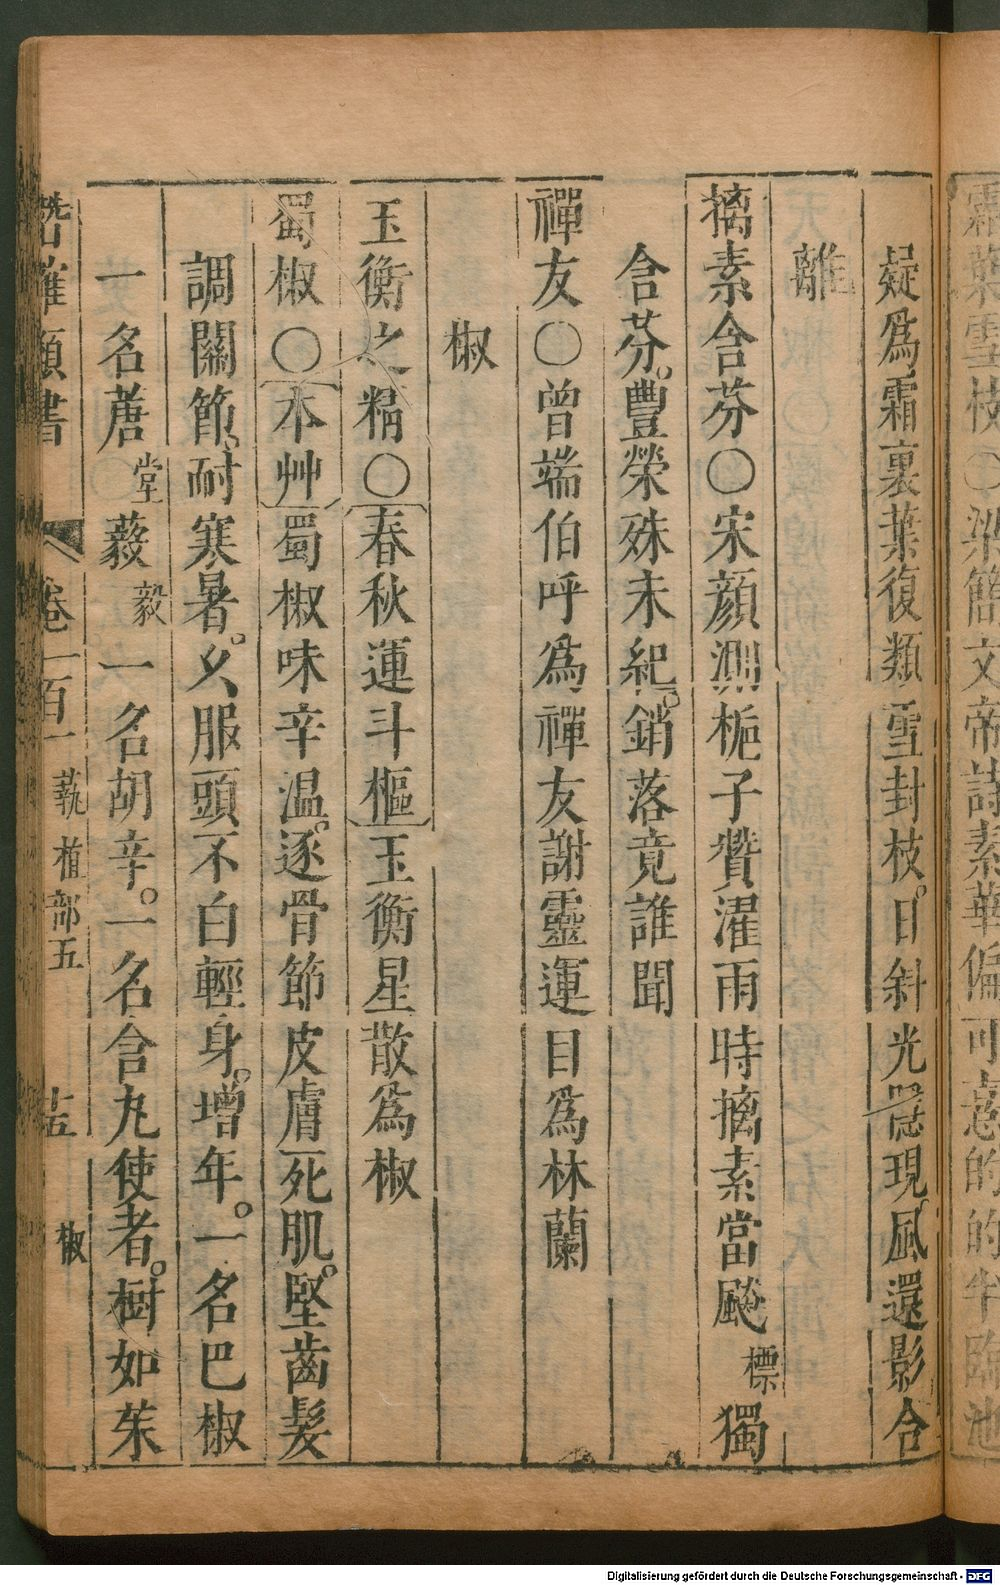 霜葉雪枝〇梁簡文帝詩素華偏可憙的的半臨池
疑爲霜裏葉復類雪封枝。日斜光隱現。風還影合
離
摛素含芬〇宋顏測梔子贊濯雨時摛素當飈標獨
含芬。豐榮殊未紀。銷落竟誰聞
禪友〇曾端伯呼爲禪友謝靈運目爲林蘭
椒
玉衡之精〇春秋運斗樞玉衡星散爲椒
蜀椒〇本艸蜀椒味辛温。逐骨節皮膚死肌。堅齒髮
調關節。耐寒暑。久服頭不白輕身。增年。一名巴椒
一名蓎堂藙毅一名胡辛。一名含丸使者。樹如茱
卷一百一 蓺植部五 十五 椒
Digitalisierung gefördert durch die Deutsche Forschungsgemeinschaft - DFG